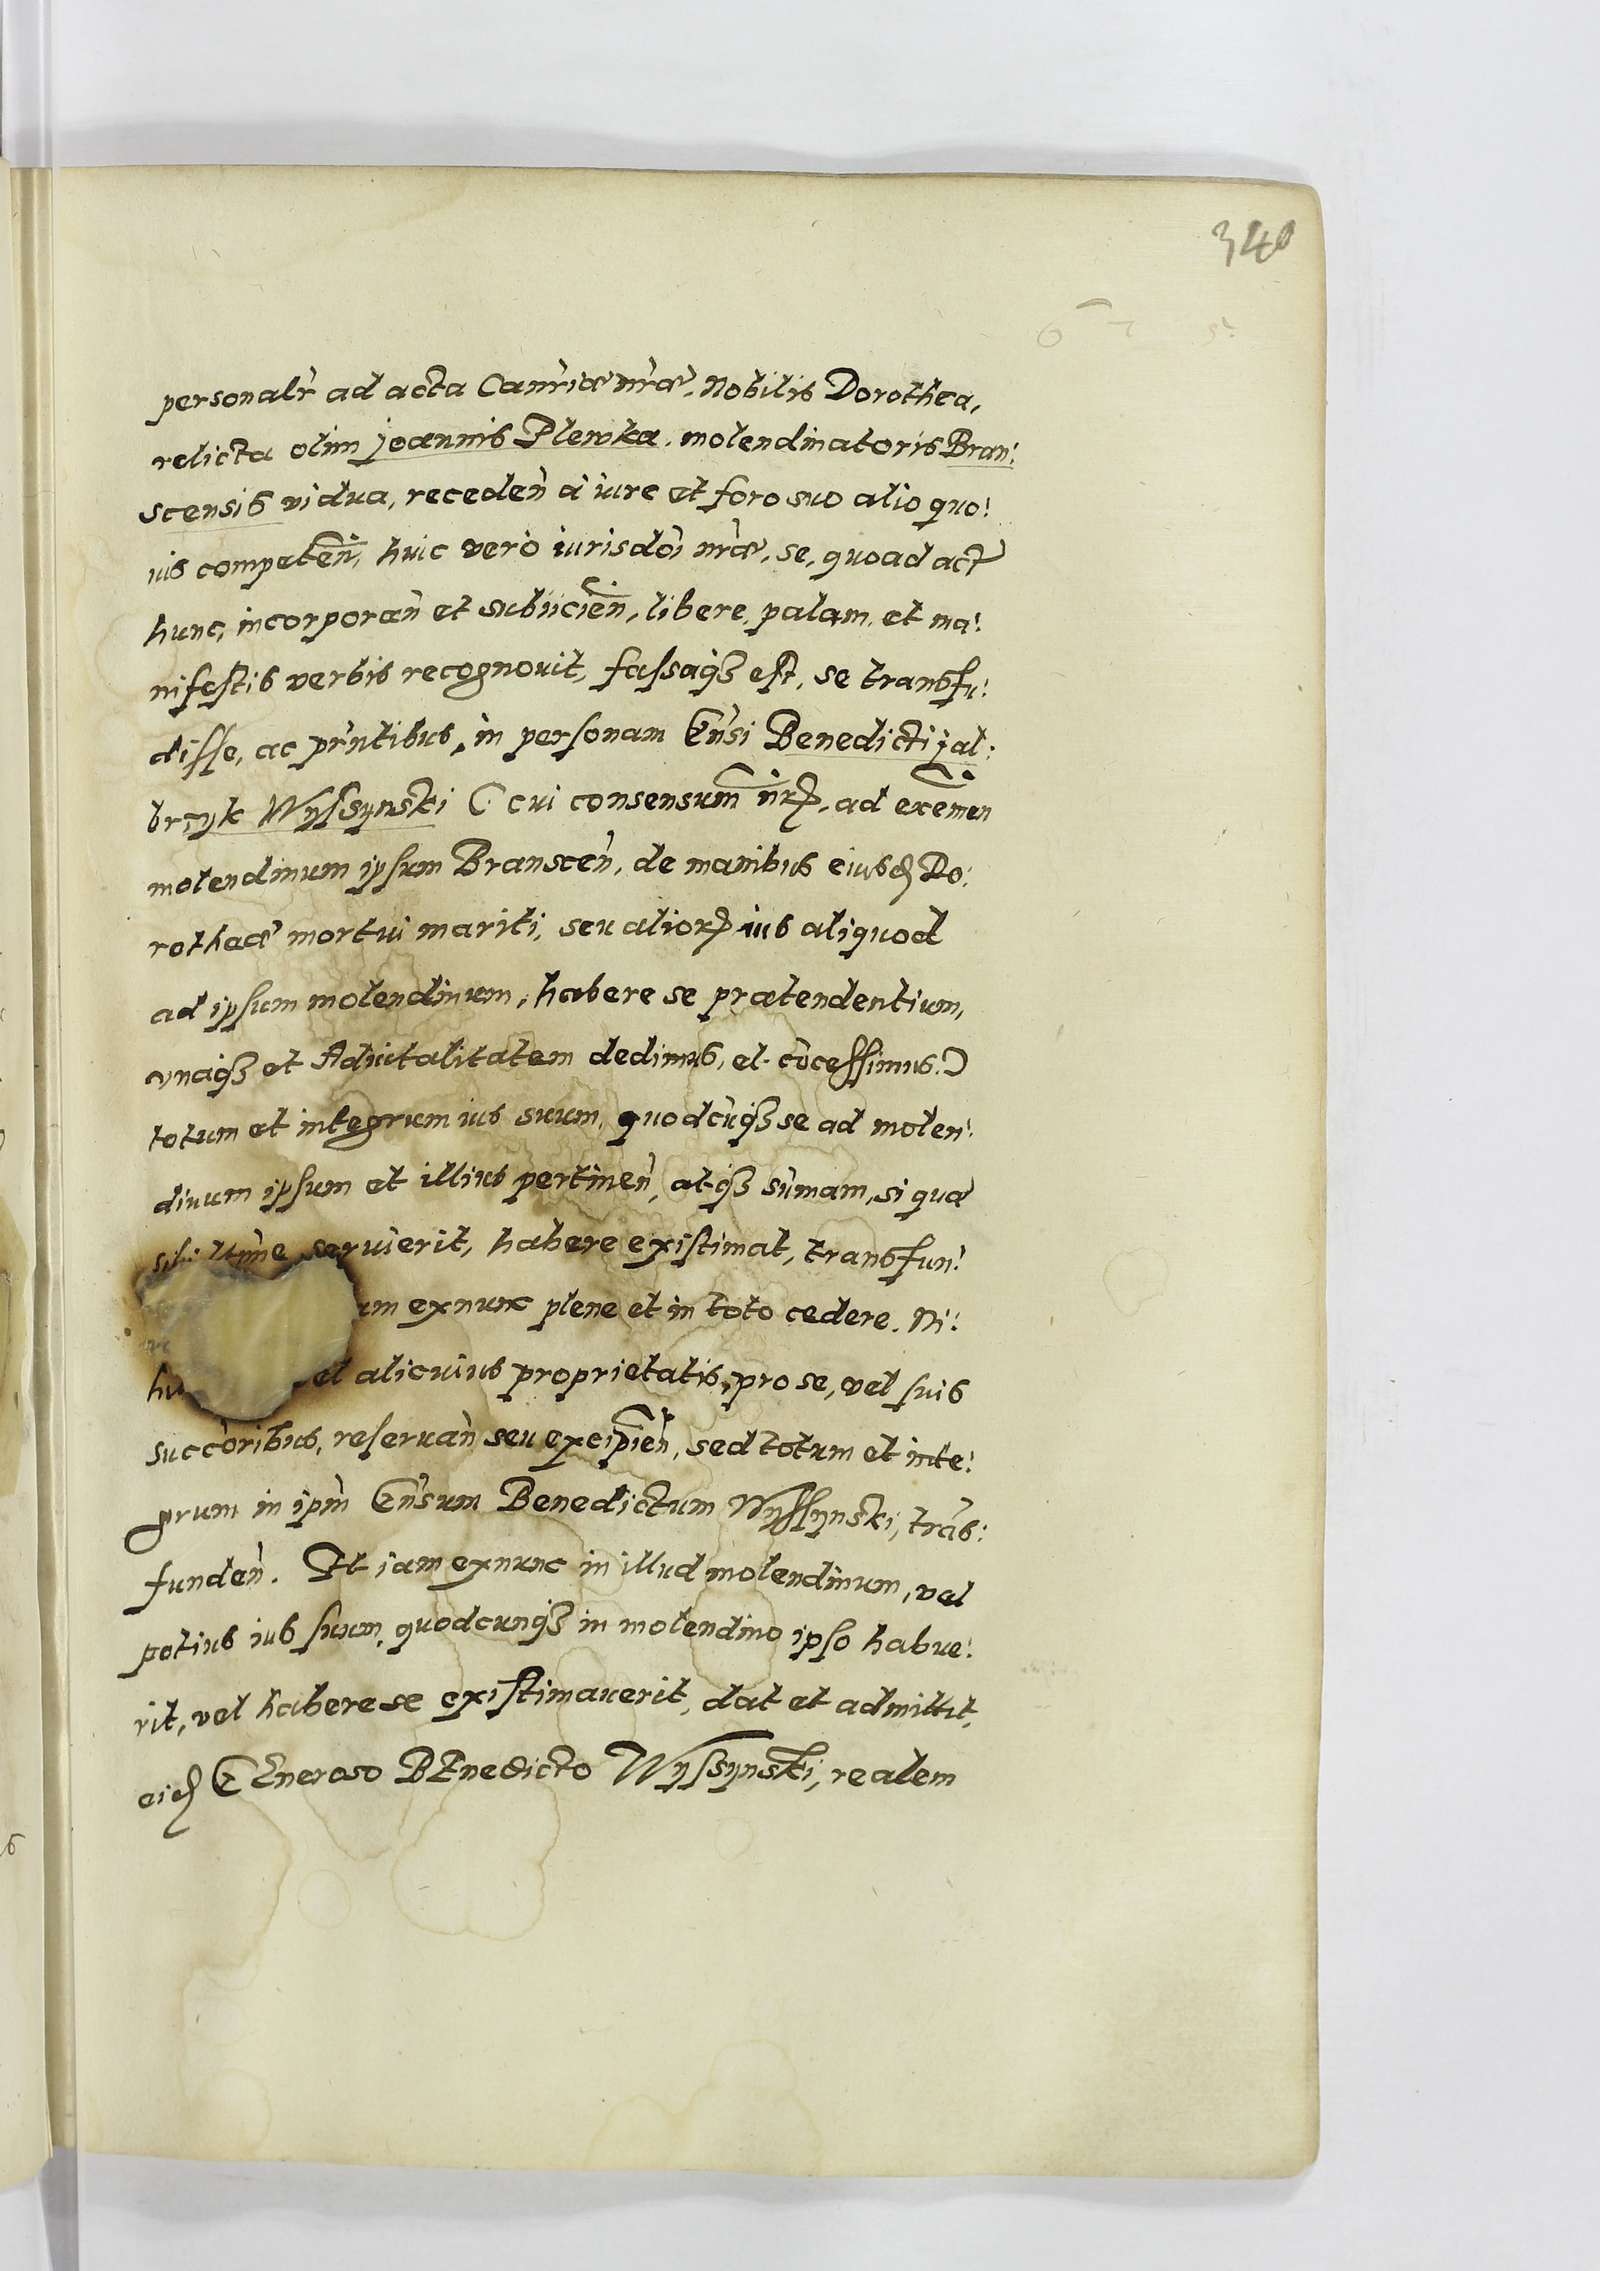 340
personalr̀ ad acta Canrìæ nràe, Nobilis Dorothea,
relicta olim joannis Plewka, molendinatoris Bran:
scensis vidua, recedeǹ à iure et foro suo alio quo:
uis competeñ, huic vero iurisdoi nràe, se, quoad act
hunc, incorporaǹ et subiicieñ, libere, palam, et ma:
nifestis verbis recognouit, fassaq3 est, se transfu:
disse, ac prǹtibus, in personam Gǹsi Benedicti jal:
brzyk Wyssynski (cui consensum nr̃ꝝ, ad exemen
molendinum ipsum Bransceǹ, de manibus eiusđ Do:
rotheæ mortui mariti, seu alioꝝ ius aliquod
ad ipsum molendinum, habere se prætendentium,
vnaq3 et Aduitalitatem dedimus, et còcessimus.)
totum et integrum ius suum, quodcùq3 se ad molen:
dinum ipsum et illius pertineǹ, atq3 sùmam, si quæ
sibi seruierit, habere existimat, transfun:
um exnunc plene et in toto cedere. Ni:
hi el alicuius proprietatis, pro se, vel suis
succòribus, reseruaǹ seu excipieñ, sed totum et inte:
grum in ipm̀ Gǹsum Benedictum Wyssynski, tràs:
fundeǹ. Et iam exnunc in illud molendinum, vel
potius ius suum, quodcunq3 in molendino ipso habue:
rit, vel habere se existimauerit, dat et admittit,
eiđ GEneroso BEnedicto Wyssynski, realem